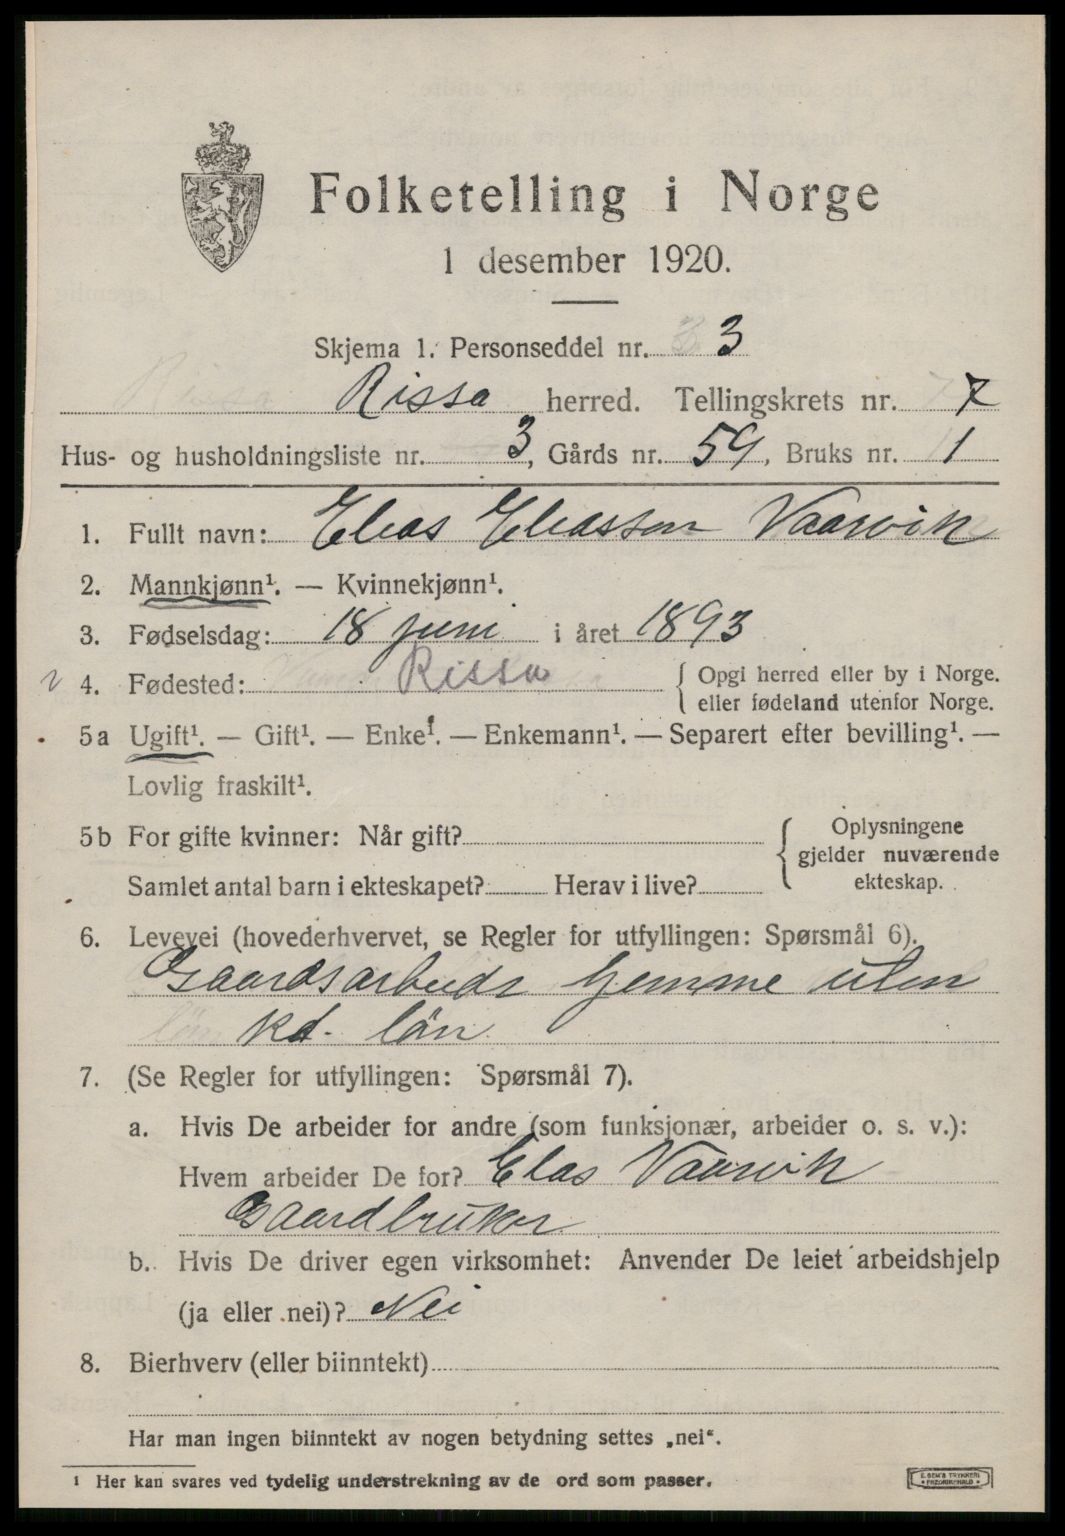 Folketelling i Norge
1 desember 1920.
Skjema 1. Personseddel nr. 3
Rissa herred. Tellingskrets nr. 7
Hus- og husholdningsliste nr. 3, Gårds nr. 59, Bruks nr. 1
1. Fullt navn: Elias Eliassen Vaarvik
2. Mannkjønn¹. — Kvinnekjønn¹.
3. Fødselsdag: 18 juni i året 1893
4. Fødested: Rissa { Opgi herred eller by i Norge.
eller fødeland utenfor Norge.
5a Ugift¹. — Gift¹. — Enke¹. — Enkemann¹. — Separert efter bevilling¹. —
Lovlig fraskilt¹.
5b For gifte kvinner: Når gift?
Samlet antal barn i ekteskapet? Herav i live?
{ Oplysningene
gjelder nuværende
ekteskap.
6. Levevei (hovederhvervet, se Regler for utfyllingen: Spørsmål 6).
Gaardsarbeide hjemme uten
kd. løn
7. (Se Regler for utfyllingen: Spørsmål 7).
a. Hvis De arbeider for andre (som funksjonær, arbeider o. s. v.):
Hvem arbeider De for? Elias Vaarvik
Gaardbruker
b. Hvis De driver egen virksomhet: Anvender De leiet arbeidshjelp
(ja eller nei)? Nei
8. Bierhverv (eller biinntekt)
Har man ingen biinntekt av nogen betydning settes „nei“.
¹ Her kan svares ved tydelig understrekning av de ord som passer.
E. SEM'S TRYKKERI
• FREDRIKSHALD •